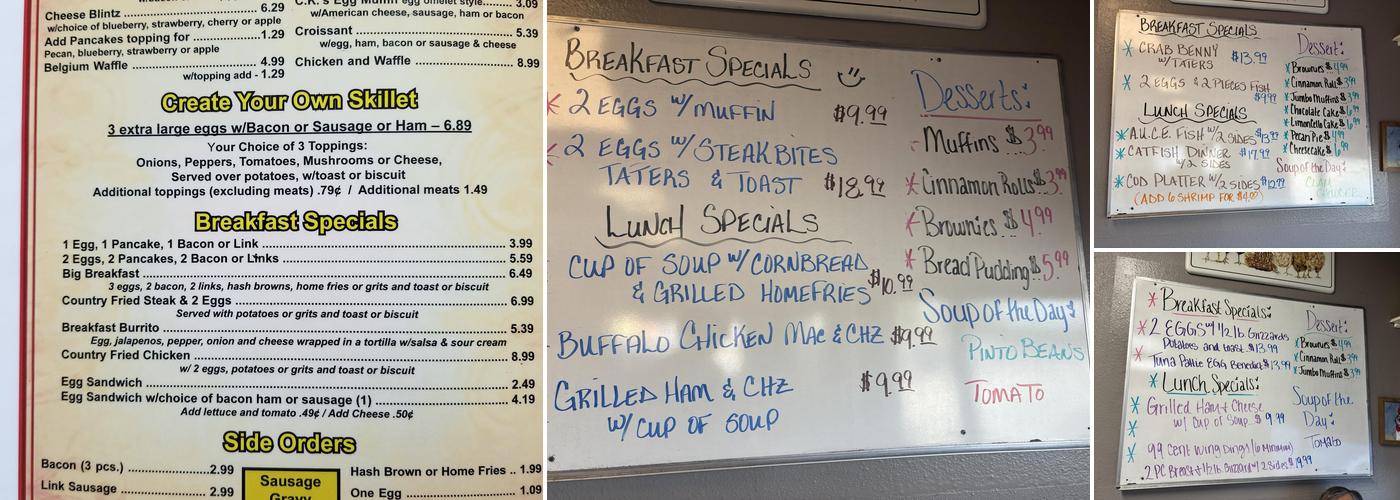 Cheese Blintz 6.29
w/choice of blueberry, strawberry, cherry or apple
Add Pancakes topping for 1.29
Pecan, blueberry, strawberry or apple
Belgium Waffle 4.99
w/topping add - 1.29
C.K.'s Egg Muffin egg omelet style 3.09
w/American cheese, sausage, ham or bacon
Croissant 5.39
w/egg, ham, bacon or sausage & cheese
Chicken and Waffle 8.99
Create Your Own Skillet
3 extra large eggs w/Bacon or Sausage or Ham – 6.89
Your Choice of 3 Toppings:
Onions, Peppers, Tomatoes, Mushrooms or Cheese,
Served over potatoes, w/toast or biscuit
Additional toppings (excluding meats) .79¢ / Additional meats 1.49
Breakfast Specials
1 Egg, 1 Pancake, 1 Bacon or Link 3.99
2 Eggs, 2 Pancakes, 2 Bacon or Links 5.59
Big Breakfast 6.49
3 eggs, 2 bacon, 2 links, hash browns, home fries or grits and toast or biscuit
Country Fried Steak & 2 Eggs 6.99
Served with potatoes or grits and toast or biscuit
Breakfast Burrito 5.39
Egg, jalapenos, pepper, onion and cheese wrapped in a tortilla w/salsa & sour cream
Country Fried Chicken 8.99
w/ 2 eggs, potatoes or grits and toast or biscuit
Egg Sandwich 2.49
Egg Sandwich w/choice of bacon ham or sausage (1) 4.19
Add lettuce and tomato .49¢ / Add Cheese .50¢
Side Orders
Bacon (3 pcs.) 2.99
Link Sausage 2.99
Sausage
Gravy
Hash Brown or Home Fries .. 1.99
One Egg 1.09
BREAKFAST SPECIALS
2 EGGS W/MUFFIN $9.99
2 EGGS W/STEAK BITES
TATERS & TOAST $18.99
LUNCH SPECIALS
CUP OF SOUP W/CORNBREAD
& GRILLED HOMEFRIES $10.99
BUFFALO CHICKEN MAC & CHZ $9.99
GRILLED HAM & CHZ $9.99
W/CUP OF SOUP
Desserts:
Muffins $3.99
Cinnamon Rolls $3.
Brownies $4.99
Bread Pudding $5.99
Soup of the Day:
PINTO BEANS
TOMATO
BREAKFAST SPECIALS
CRAB BENNY $13.99
W/TATERS
2 EGGS & 2 PIECES FISH
$9.99
LUNCH SPECIALS
A.U.C.E. FISH W/2 SIDES
CATFISH DINNER $17.99
W/2 SIDES
COD PLATTER W/2 SIDES
(ADD 6 SHRIMP FOR $4.00)
Dessert:
Brownies $4.99
Cinnamon Roll $3.99
Jumbo Muffins $3.99
Chocolate Cake $6.99
Limoncello Cake $6.99
Pecan Pie $4.99
Cheesecake $6.99
Soup of the Day:
Breakfast Specials:
2 EGGS W/ 1/2 lb Gizzards
Potatoes and toast $13.99
Tuna Pattie EGG Benedict $13.99
Lunch Specials:
Grilled Ham & Cheese
w/ Cup of Soup $9.99
99 cent Wing Dings (6 Minimum)
2 PC Breast & 1/2 lb Gizzard w/ 2 Sides $19.99
Dessert:
Brownies $4.99
Cinnamon Roll $3.99
Jumbo Muffins $3.99
Soup of the
Day:
Tomato